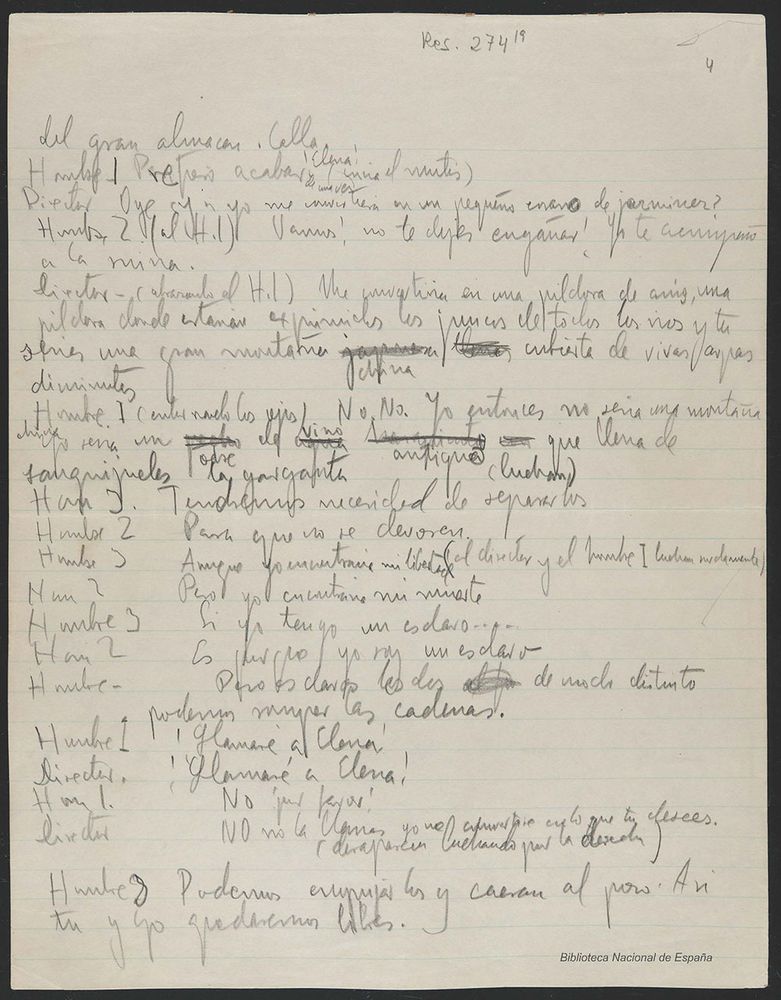 Res. 274 19
4
del gran almacen. Calla
Hombre 1 Prefiero acabar ¡Elena! (inicia el mutis)
de una vez
Director Oye si yo me convirtiera en un pequeño enano de jazmines?
Hombre 2 (al H. 1) Vamos! no te dejes engañar! Yo te acompaño
a la ruina.
Director - (abrazando al H. 1) Me convertiria en una pildora de anis, una
pildora donde estarian exprimidos los juncos de todos los rios y tu
serias una gran montaña china cubierta de vivas arpas
diminutas
Hombre 1 (entornando los ojos) No. No. Yo entonces no seria una montaña
china Yo seria un odre de vino antiguo que llena de
sanguijuelas la garganta (luchan)
Hom 3. Tendremos necesidad de separarlos
Hombre 2 Para que no se devoren.
Hombre 3 Aunque yo encontraria mi libertad (el director y el hombre 1 luchan sordamente)
Hom 2 Pero yo encontraria mi muerte
Hombre 3 Si yo tengo un esclavo.....
Hom 2 Es porque yo soy un esclavo
Hombre - Pero esclavos los dos de modo distinto
podemos romper las cadenas.
Hombre 1 ¡Llamaré a Elena!
Director. ¡Llamaré a Elena!
Hom 1. No ¡por favor!
Director NO no la llames yo me convertiré en lo que tu desees.
(desaparecen luchando por la derecha)
Hombre 3 Podemos empujarlos y caeran al pozo. Asi
tu y yo quedaremos libres.
Biblioteca Nacional de España